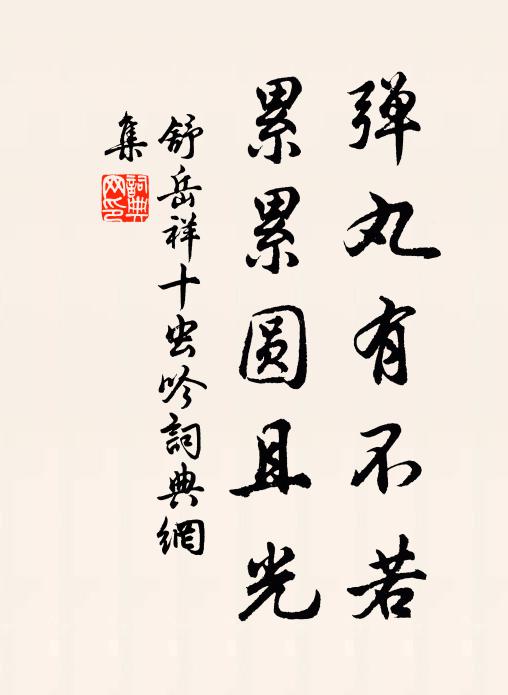 弹丸有不若
累累圆且光
舒岳祥十虫吟詞典網
集
詞典
网印